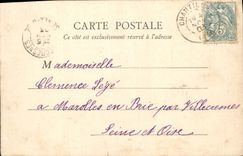 CARTE POSTALE
Ce côté est exclusivement réservé à l'adresse
Mademoiselle
Clemence Légé
à Marolles en Brie par Villecresnes
Seine et Oise